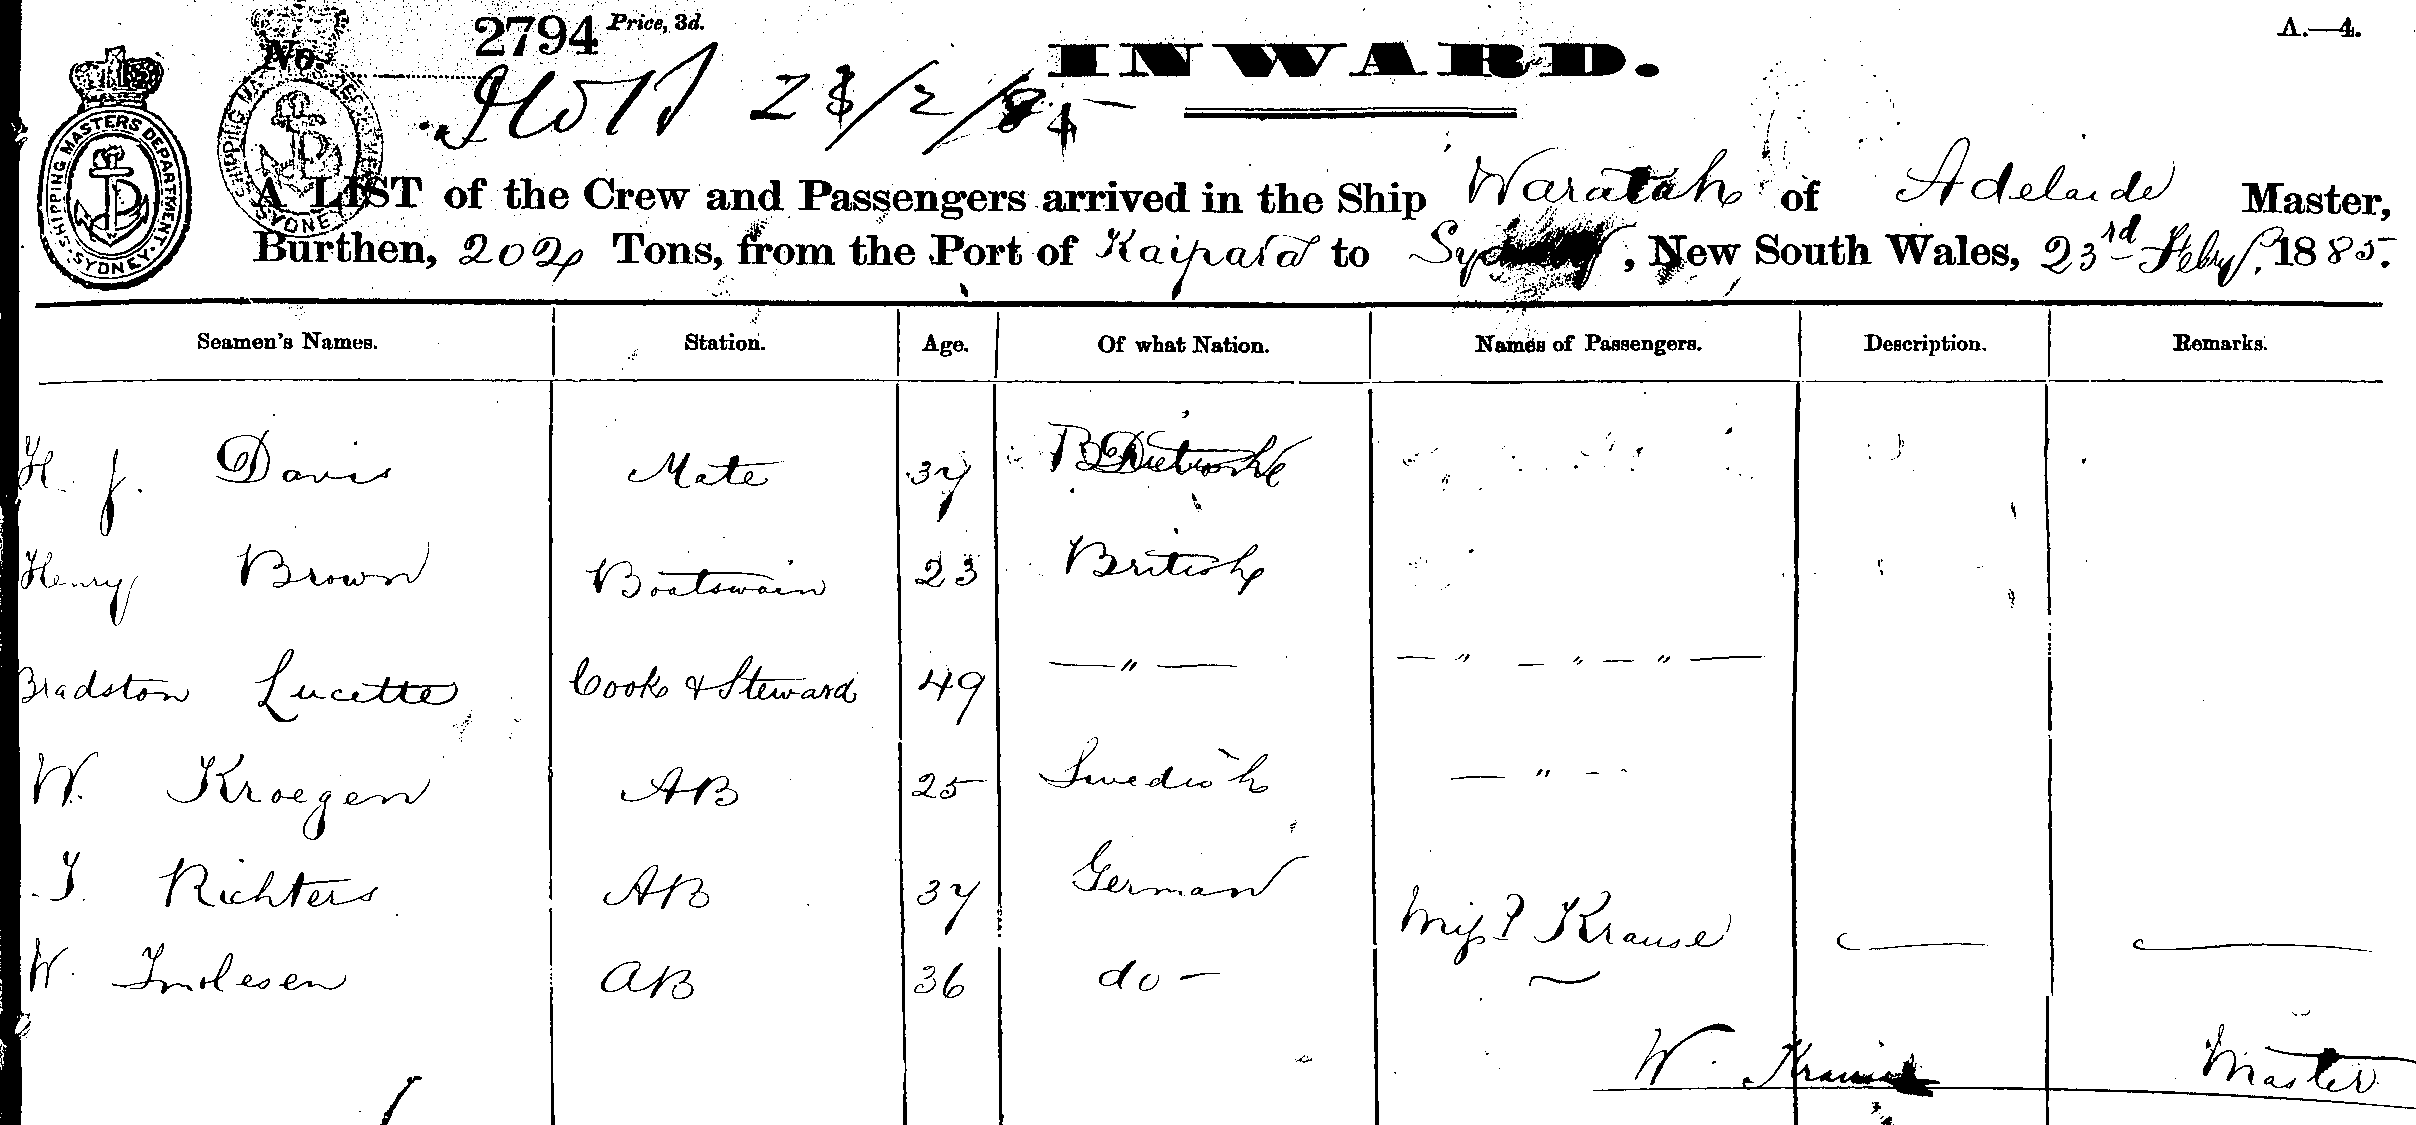 No. 2794 Price, 3d. INWARD. A.—4.
SHIPPING MASTERS DEPARTMENT. SYDNEY.
A LIST of the Crew and Passengers arrived in the Ship Waratah of Adelaide Master,
Burthen, 202 Tons, from the Port of Kaipara to Sydney, New South Wales, 23rd Feby. 1885.
Seamen's Names. Station. Age. Of what Nation. Names of Passengers. Description. Remarks.
H. J. Davis Mate 37
Henry Brown Boatswain 23 British
Bradston Lucette Cook & Steward 49 — " — — " — " — " —
W. Kroegen AB 25 Swedish — " - -
Richters AB 37 German
Miss Krause
W. AB 36 do -
W. Krause Master